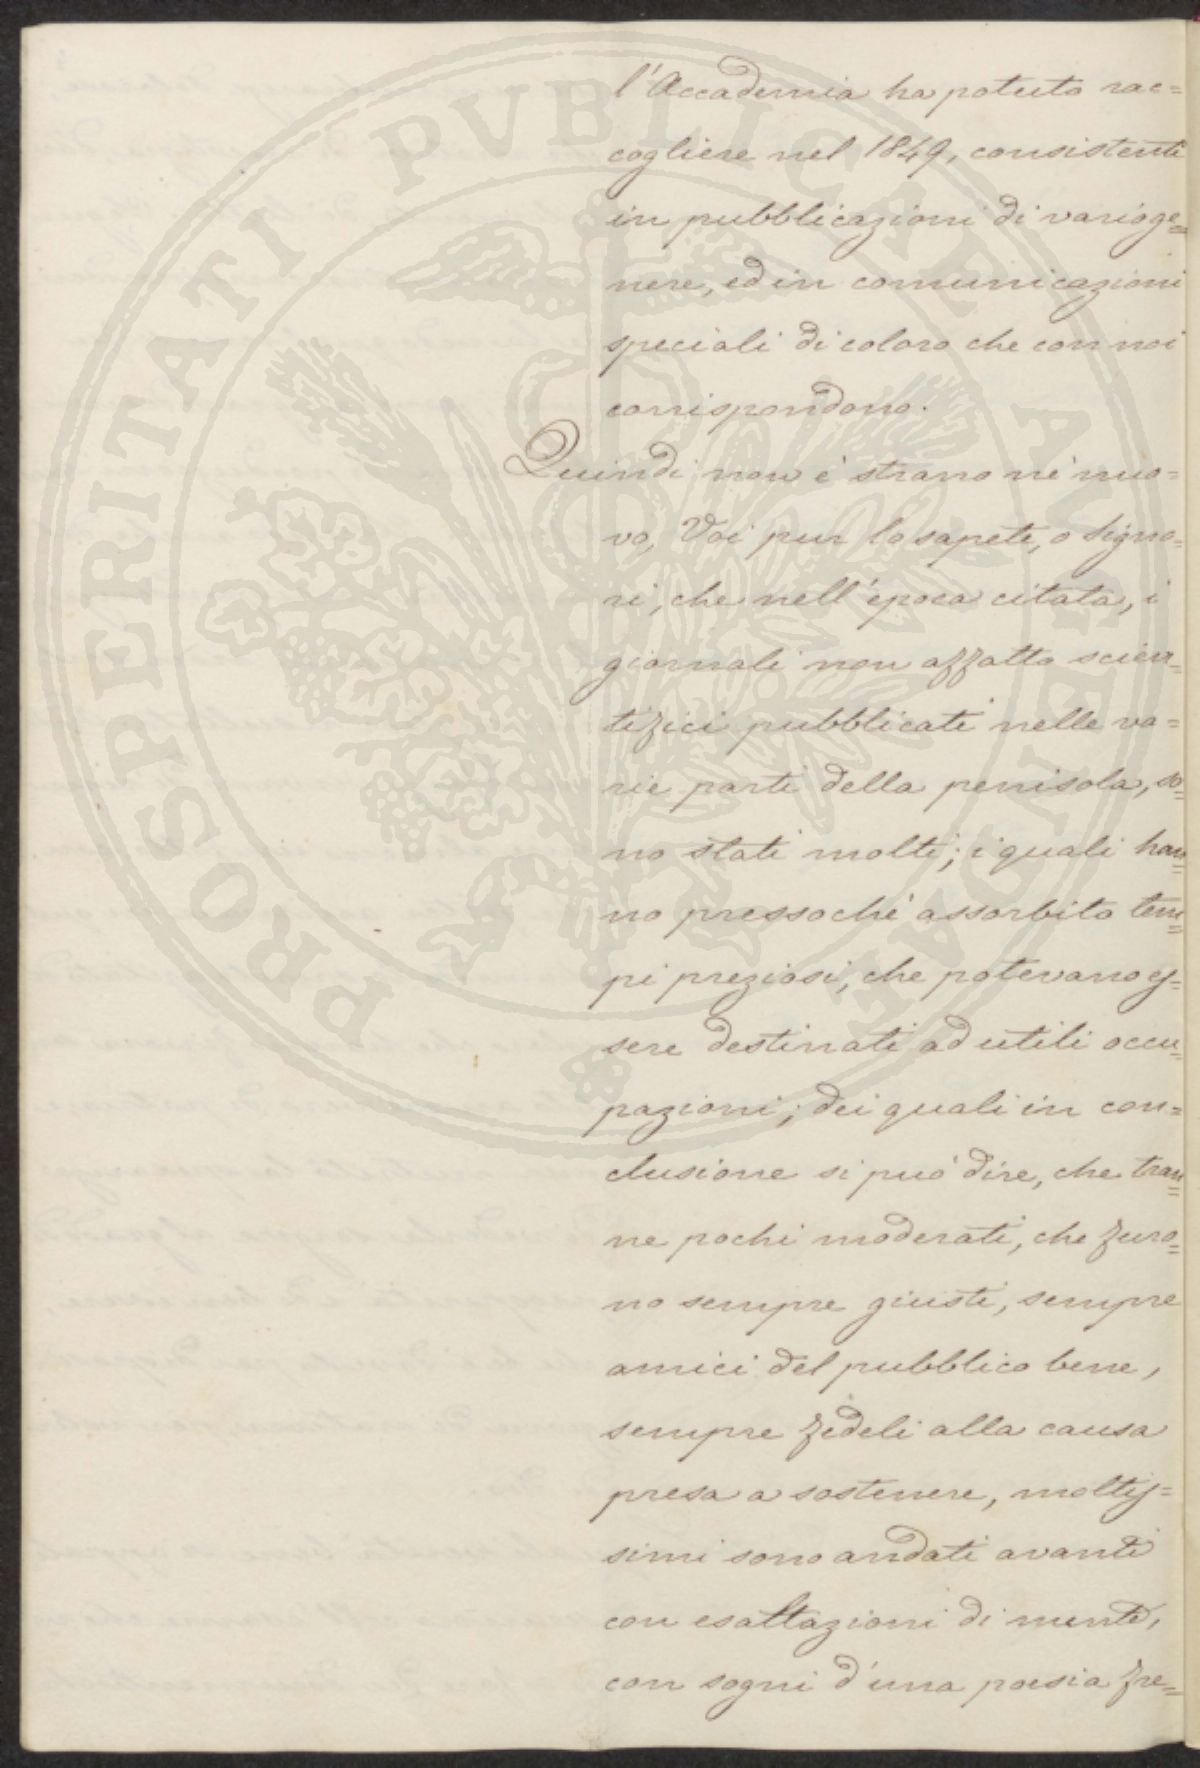 l'Accademia ha potuto rac=
cogliere nel 1849, consistenti
in pubblicazioni di vario ge=
nere, ed in comunicazioni
speciali di coloro che con noi
corrispondono.
Quindi non è strano nè nuo=
vo, Voi pur lo sapete, o Signo=
ri, che nell'epoca citata, i
giornali non affatto scien=
tifici pubblicati nelle va=
rie parti della penisola, so=
no stati molti; i quali han=
no pressochè assorbito tem=
pi preziosi, che potevano es=
sere destinati ad utili occu=
pazioni; dei quali in con=
clusione si può dire, che tran=
ne pochi moderati, che furo=
no sempre giusti, sempre
amici del pubblico bene,
sempre fedeli alla causa
presa a sostenere, moltis=
simi sono andati avanti
con esaltazioni di mente,
con sogni d'una poesia fre=
PROSPERITATI PVBLICAE AVGENDAE